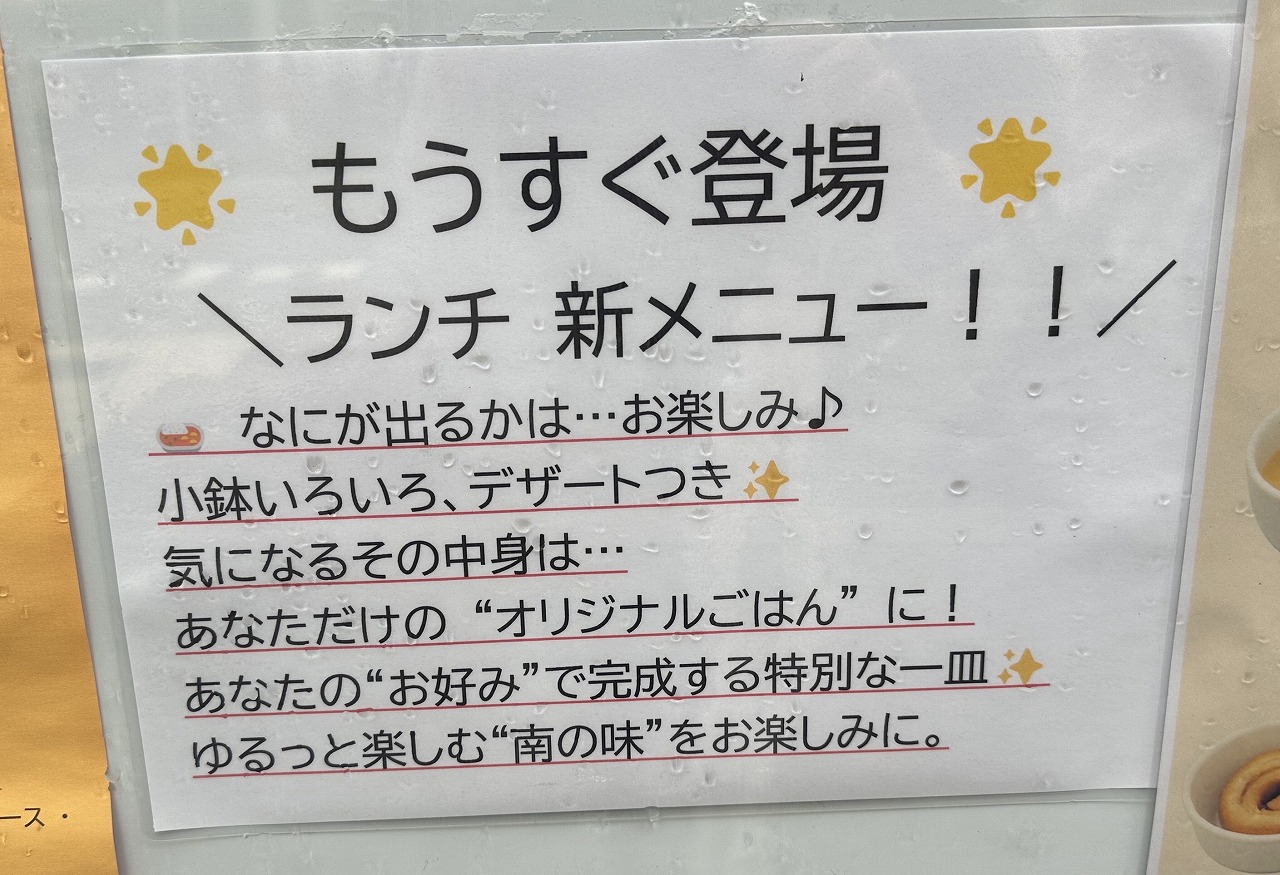 もうすぐ登場
＼ランチ 新メニュー！！／
なにが出るかは…お楽しみ♪
小鉢いろいろ、デザートつき
気になるその中身は…
あなただけの “オリジナルごはん” に！
あなたの“お好み”で完成する特別な一皿
ゆるっと楽しむ“南の味”をお楽しみに。
ース・